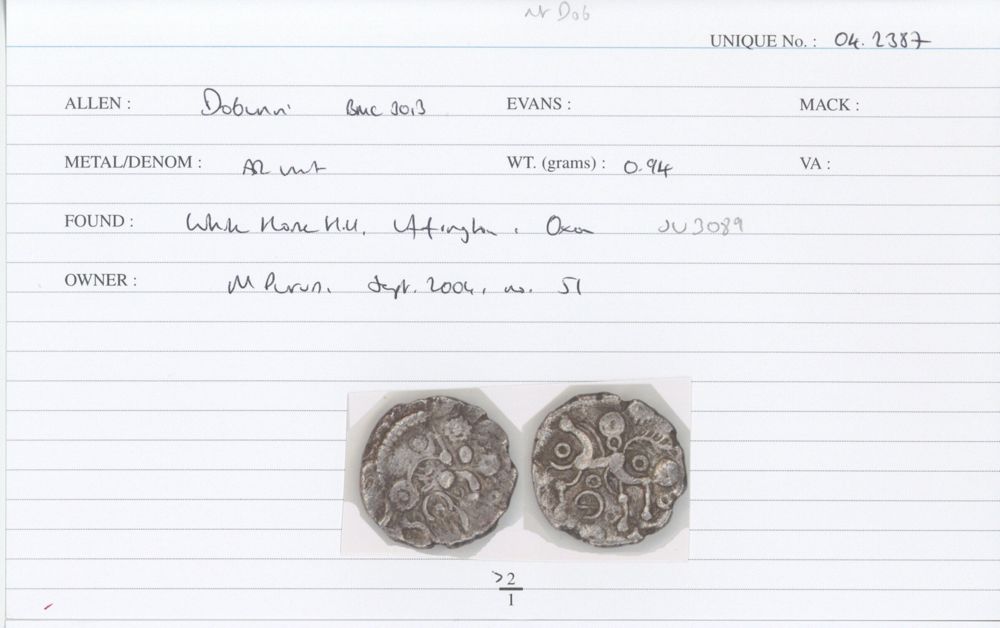 Dob
UNIQUE No. : 04.2387
ALLEN : Dobunni BMC 3013 EVANS : MACK :
METAL/DENOM : AR unit WT. (grams) : 0.94 VA :
FOUND : White Horse Hill, Uffington, Oxon SU3089
OWNER : M Sept. 2004, no. 51
>2
1